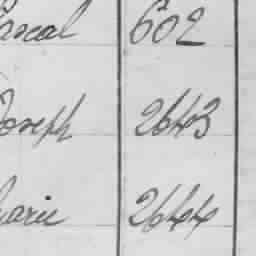 Pascal 602
Joseph 2643
Marie 2644